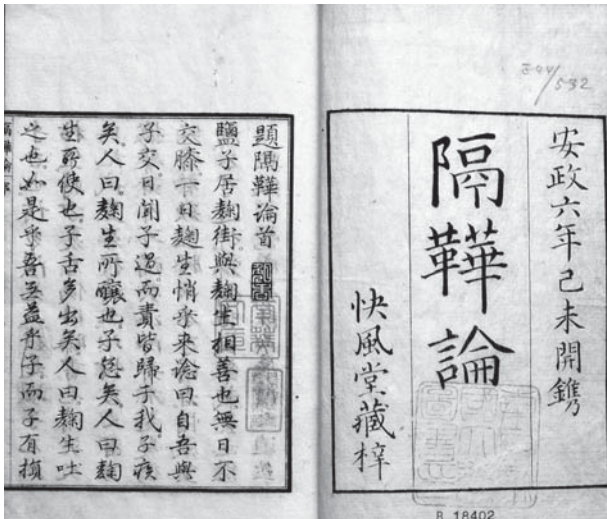 安政六年己未開鐫
隔鞾論
快風堂藏梓
544/532
B 18402
題隔鞾論首
鹽子居麴街與麴生相善也無日不
交膝一日麴生悄乎來諗曰自吾與
子交日聞子過而責皆歸于我子疾
矣人曰麴生所釀也子怠矣人曰麴
生所使也子舌多出矣人曰麴生吐
之也如是乎吾無益乎子而子有損